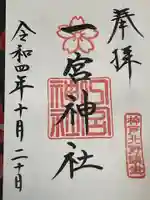 奉拝
一宮神社
令和四年十月二十日